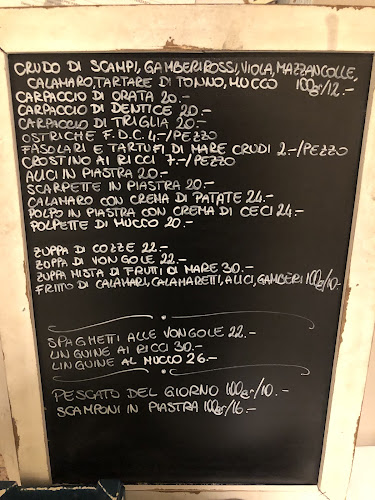 CRUDO DI SCAMPI, GAMBERI ROSSI, VIOLA, MAZZANCOLLE,
CALAMARO, TARTARE DI TONNO, MUCCO 100gr/12.-
CARPACCIO DI ORATA 20.-
CARPACCIO DI DENTICE 20.-
CARPACCIO DI TRIGLIA 20.-
OSTRICHE F.D.C. 4.-/PEZZO
FASOLARI E TARTUFI DI MARE CRUDI 2.-/PEZZO
CROSTINO AI RICCI 7.-/PEZZO
ALICI IN PIASTRA 20.-
SCARPETTE IN PIASTRA 20.-
CALAMARO CON CREMA DI PATATE 24.-
POLPO IN PIASTRA CON CREMA DI CECI 24.-
POLPETTE DI MUCCO 20.-
ZUPPA DI COZZE 22.-
ZUPPA DI VONGOLE 22.-
ZUPPA MISTA DI FRUTTI DI MARE 30.-
FRITTO DI CALAMARI, CALAMARETTI, ALICI, GAMBERI 100gr/10.-
SPAGHETTI ALLE VONGOLE 22.-
LINGUINE AI RICCI 30.-
LINGUINE AL MUCCO 26.-
PESCATO DEL GIORNO 100gr/10.-
SCAMPONI IN PIASTRA 100gr/16.-